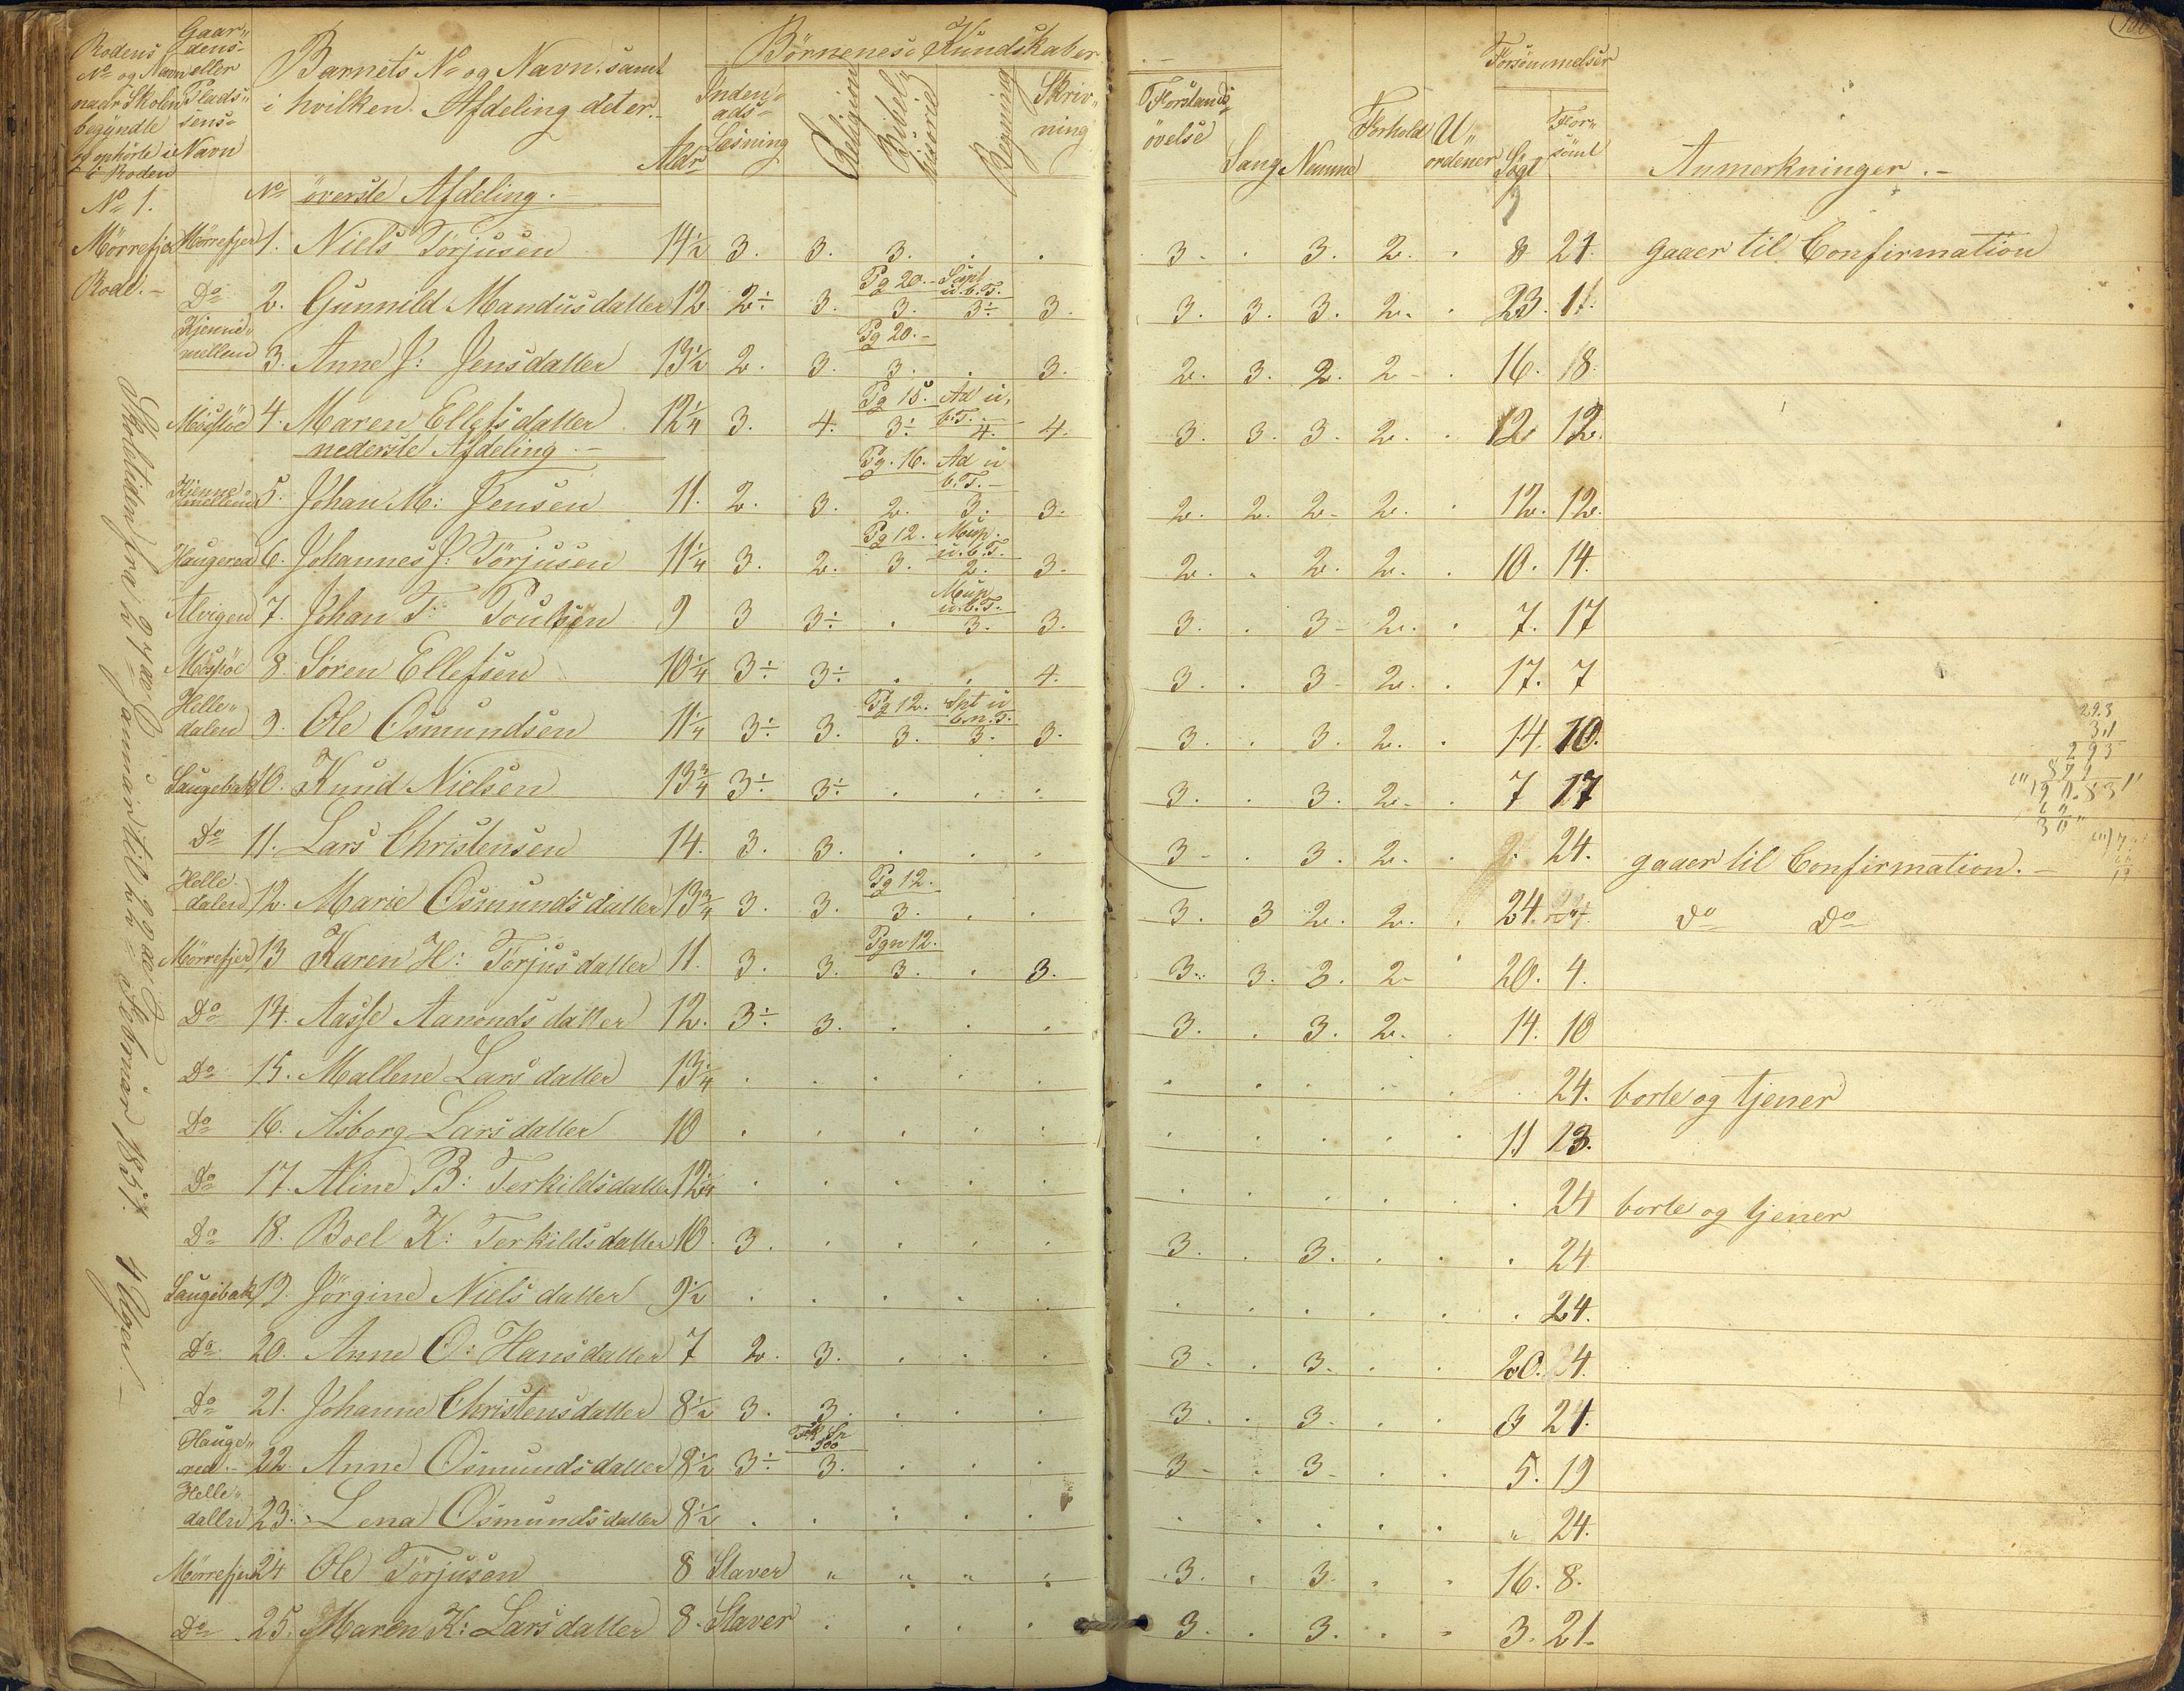 Rodens No og Navn naar Skolen begyndte og ophörte i Roden
Gaardens eller Pladsens Navn
Barnets No og Navn samt i hvilken Afdeling det er.
Alder
Börnenes Kundskaber
Indenads Læsning
Religion
Bibelhistorie
Regning
Skrivning
Forstandsövelse
Sang
Nemme
Forhold
Uordener
Forsömmelser
Sögt
Forsömt
Anmerkninger.
No 1.
Mörrefjer Rode.
Skoletiden fra 27de Januar til 22de Februar 1851. 4 Uger.
No överste Afdeling.
Mörrefjer 1. Niels Törjusen 14½ 3. 3. 3. . . 3. . 3. 2. . 8 21. gaaer til Confirmation
Pg 20. Supt u.b.T.
Do 2. Gunnild Mandusdatter 12 2÷ 3. 3. 3÷ 3. 3. 3. 3. 2. . 23. 1.
Pg 20.
3. Anne J: Jensdatter 13½ 2. 3. 3. . 3. 2. 3. 2. 2 . 16. 18.
Pg 15. Ad u. b.T.
4. Maren Ellefsdatter 12¼ 3. 4. 3÷ 4. 4. 3. 3. 3. 2. . 12 12.
nederste Afdeling.
Pg. 16. Ad u b.T.
5. Johan M: Jensen 11. 2. 3. 2. 3. 3. 2. 2. 2 2. . 12. 12.
Pg 12. Mup. u.b.T.
Haugerea 6. Johannes J: Törjusen 11¼ 3. 2. 3. 2. 3. 2. . 2. 2. . 10. 14.
Mup u.b.T.
Alvigen 7. Johan T: Poulsen 9 3 3÷ . 3. 3. 3. . 3 2. . 7. 17
8. Sören Ellefsen 10¼ 3÷ 3÷ . . 4. 3. . 3 2. . 17. 7
Pg 12. Spt u b.n.T.
Helledalen 9. Ole Osmundsen 11¼ 3÷ 3. 3. 3. 3. 3. . 3. 2. . 14. 10.
Laugebak 10. Knud Nielsen 13¾ 3÷ 3÷ . . . 3. . 3. 2. . 7 17
Do 11. Lars Christensen 14. 3. 3. . . . 3 . 3. 2. . 24. gaaer til Confirmation.
Pg 12.
Helledalen 12. Marie Osmundsdatter 13¾ 3. 3. 3. . . 3. 3 2. 2. . 24. Do Do
Pgn 12.
Mörrefjer 13 Karen H: Törjusdatter 11. 3. 3. 3. . 3. 3. 3. 3. 2 . 20. 4.
Do 14. Aasse Aanondsdatter 12. 3÷ 3. . . . 3. . 3. 2. . 14. 10
Do 15. Mallene Larsdatter 13¼ . . . . . . . . . . . 24. borte og tjener
Do 16. Asborg Larsdatter 10 . . . . . . . . . . 11 13.
Do 17. Aline B: Terkildsdatter 12¼ . . . . . . . . . . . 24 borte og tjener
Do 18. Boel K: Terkildsdatter 10 3. . . . . 3. . 3. . . . 24
Laugebak 19. Jörgine Nielsdatter 9½ . . . . . . . . . . . 24.
Do 20. Anne O: Hansdatter 7 2. 3. . . . 3. . 3. . . 20. 4.
Do 21. Johanne Christensdatter 8½ 3. 3. . . . 3. . 3. . . 3 21.
Haugerea 22. Anne Osmundsdatter 8½ 3÷ 3. . . . 3 . 3 . . 5. 19
Helledallen 23. Lena Osmundsdatter 8½ . . . . . . . . . . „ 24.
Mörrefjer 24 Ole Törjusen 8 Staver „ „ „ . 3. . 3. . . 16. 8.
Do 25. Maren K: Larsdatter 8. Staver . . . . 3. . 3. . . 3. 21.